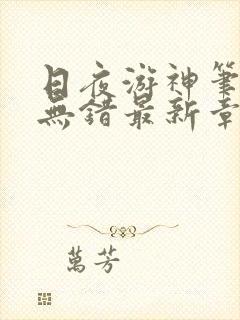 日夜游神筆
無錯最新章
萬芳